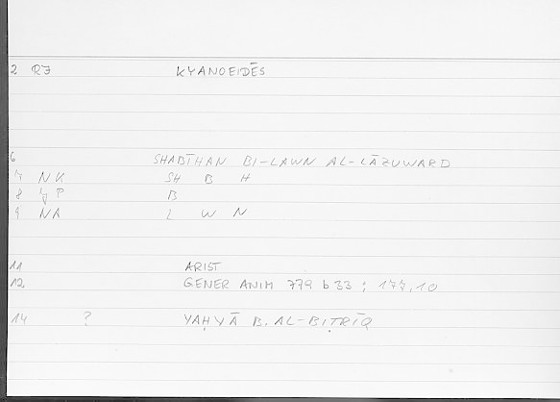 2 QJ KYANOEIDĒS
6 SHABĪHAN BI-LAWN AL-LĀZUWARD
7 NK SH B H
8 P B
9 NA L W N
11 ARIST
12 GENER ANIM 779 b 33 ; 177,10
14 ? YAḤYĀ B. AL-BIṬRĪQ